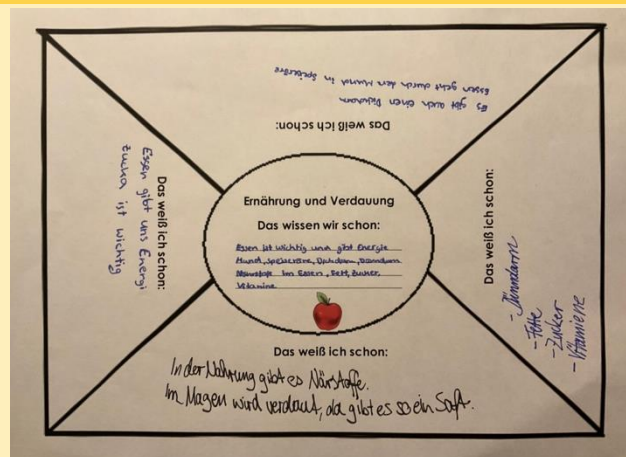 Das weiß ich schon:
Es gibt auch einen Dickdarm
Essen geht durch den Mund in Speiseröre
Das weiß ich schon:
Essen gibt uns Energi
Zucka ist wichtig
Ernährung und Verdauung
Das wissen wir schon:
Essen ist wichtig und gibt Energie
Mund, Speiseröre, Dickdarm, Dünndarm
Närstofe im Essen, Fett, Zucker,
Vitamine
Das weiß ich schon:
- Dünndarm
- Fette
- Zucker
- Vitamiene
Das weiß ich schon:
In der Nahrung gibt es Närstoffe.
Im Magen wird verdaut, da gibt es so ein Saft.